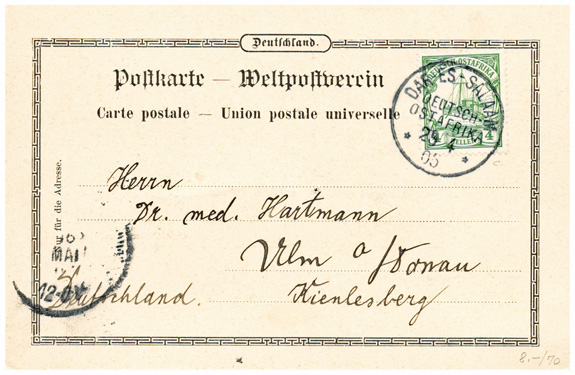 Deutschland.
Postkarte — Weltpostverein
Carte postale — Union postale universelle
DEUTSCH-OSTAFRIKA
4
DAR-ES-SALAAM
DEUTSCH-
OSTAFRIKA
29 4
05
Nur für die Adresse.
Herrn
Dr. med. Hartmann
Ulm a/Donau
Kienlesberg
Deutschland.
MAI
8.-/70